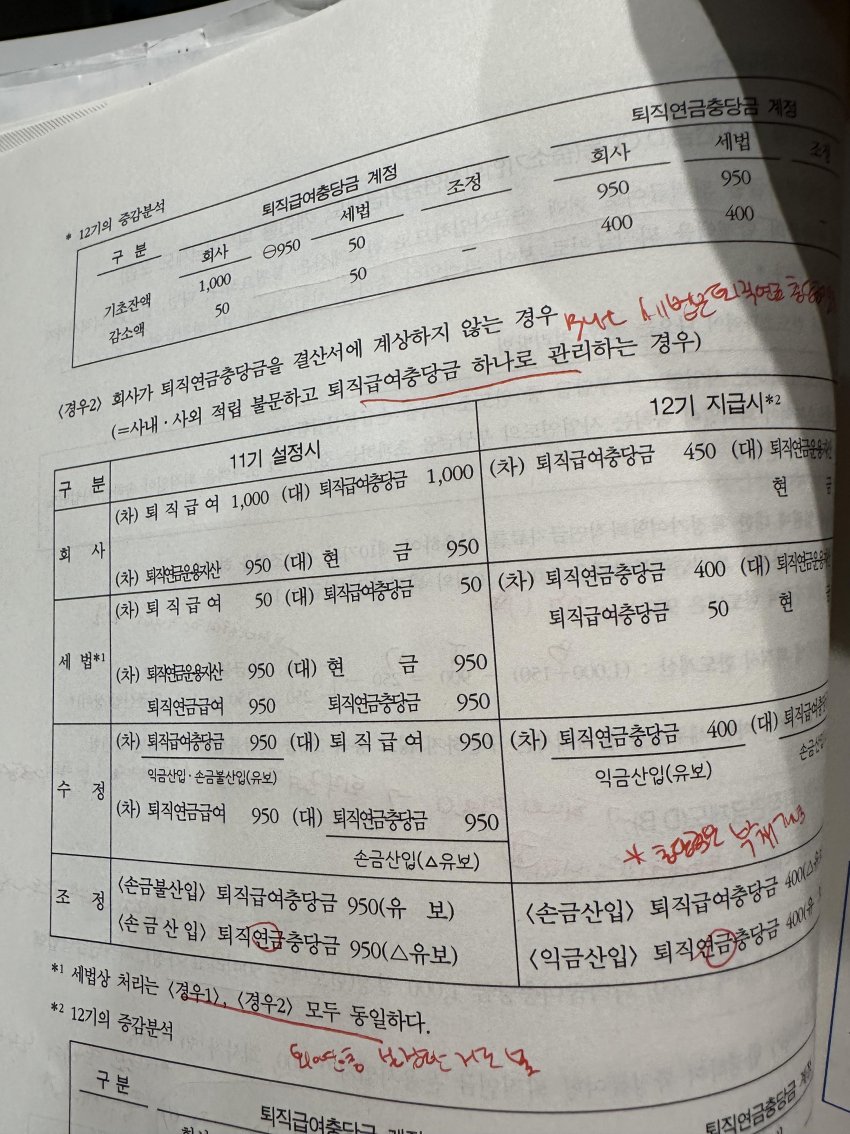 퇴직급여충당금 계정 퇴직연금충당금 계정
* 12기의 증감분석
구 분 회사 세법 조정 회사 세법 조정
기초잔액 1,000 ⊖950 50 950 950
감소액 50 50 － 400 400 －
〈경우2〉 회사가 퇴직연금충당금을 결산서에 계상하지 않는 경우 But 세법은 퇴직연금
(=사내·사외 적립 불문하고 퇴직급여충당금 하나로 관리하는 경우)
구 분 11기 설정시 12기 지급시*2
회 사 (차) 퇴 직 급 여 1,000 (대) 퇴직급여충당금 1,000 (차) 퇴직급여충당금 450 (대) 퇴직연금운용자산
현 금
(차) 퇴직연금운용자산 950 (대) 현 금 950
세 법*1 (차) 퇴 직 급 여 50 (대) 퇴직급여충당금 50 (차) 퇴직연금충당금 400 (대) 퇴직연금운용자산
퇴직급여충당금 50 현 금
(차) 퇴직연금운용자산 950 (대) 현 금 950
퇴직연금급여 950 퇴직연금충당금 950
수 정 (차) 퇴직급여충당금 950 (대) 퇴 직 급 여 950 (차) 퇴직연금충당금 400 (대) 퇴직급여
익금산입·손금불산입(유보) 익금산입(유보) 손금산입
(차) 퇴직연금급여 950 (대) 퇴직연금충당금 950
손금산입(△유보)
* 충당금은 부채
조 정 〈손금불산입〉 퇴직급여충당금 950(유 보) 〈손금산입〉 퇴직급여충당금 400(△유보
〈손 금 산 입〉 퇴직연금충당금 950(△유보) 〈익금산입〉 퇴직연금충당금 400(유
*1 세법상 처리는 〈경우1〉, 〈경우2〉 모두 동일하다.
*2 12기의 증감분석
구 분 퇴직급여충당금 계정 퇴직연금충당금 계정
회사